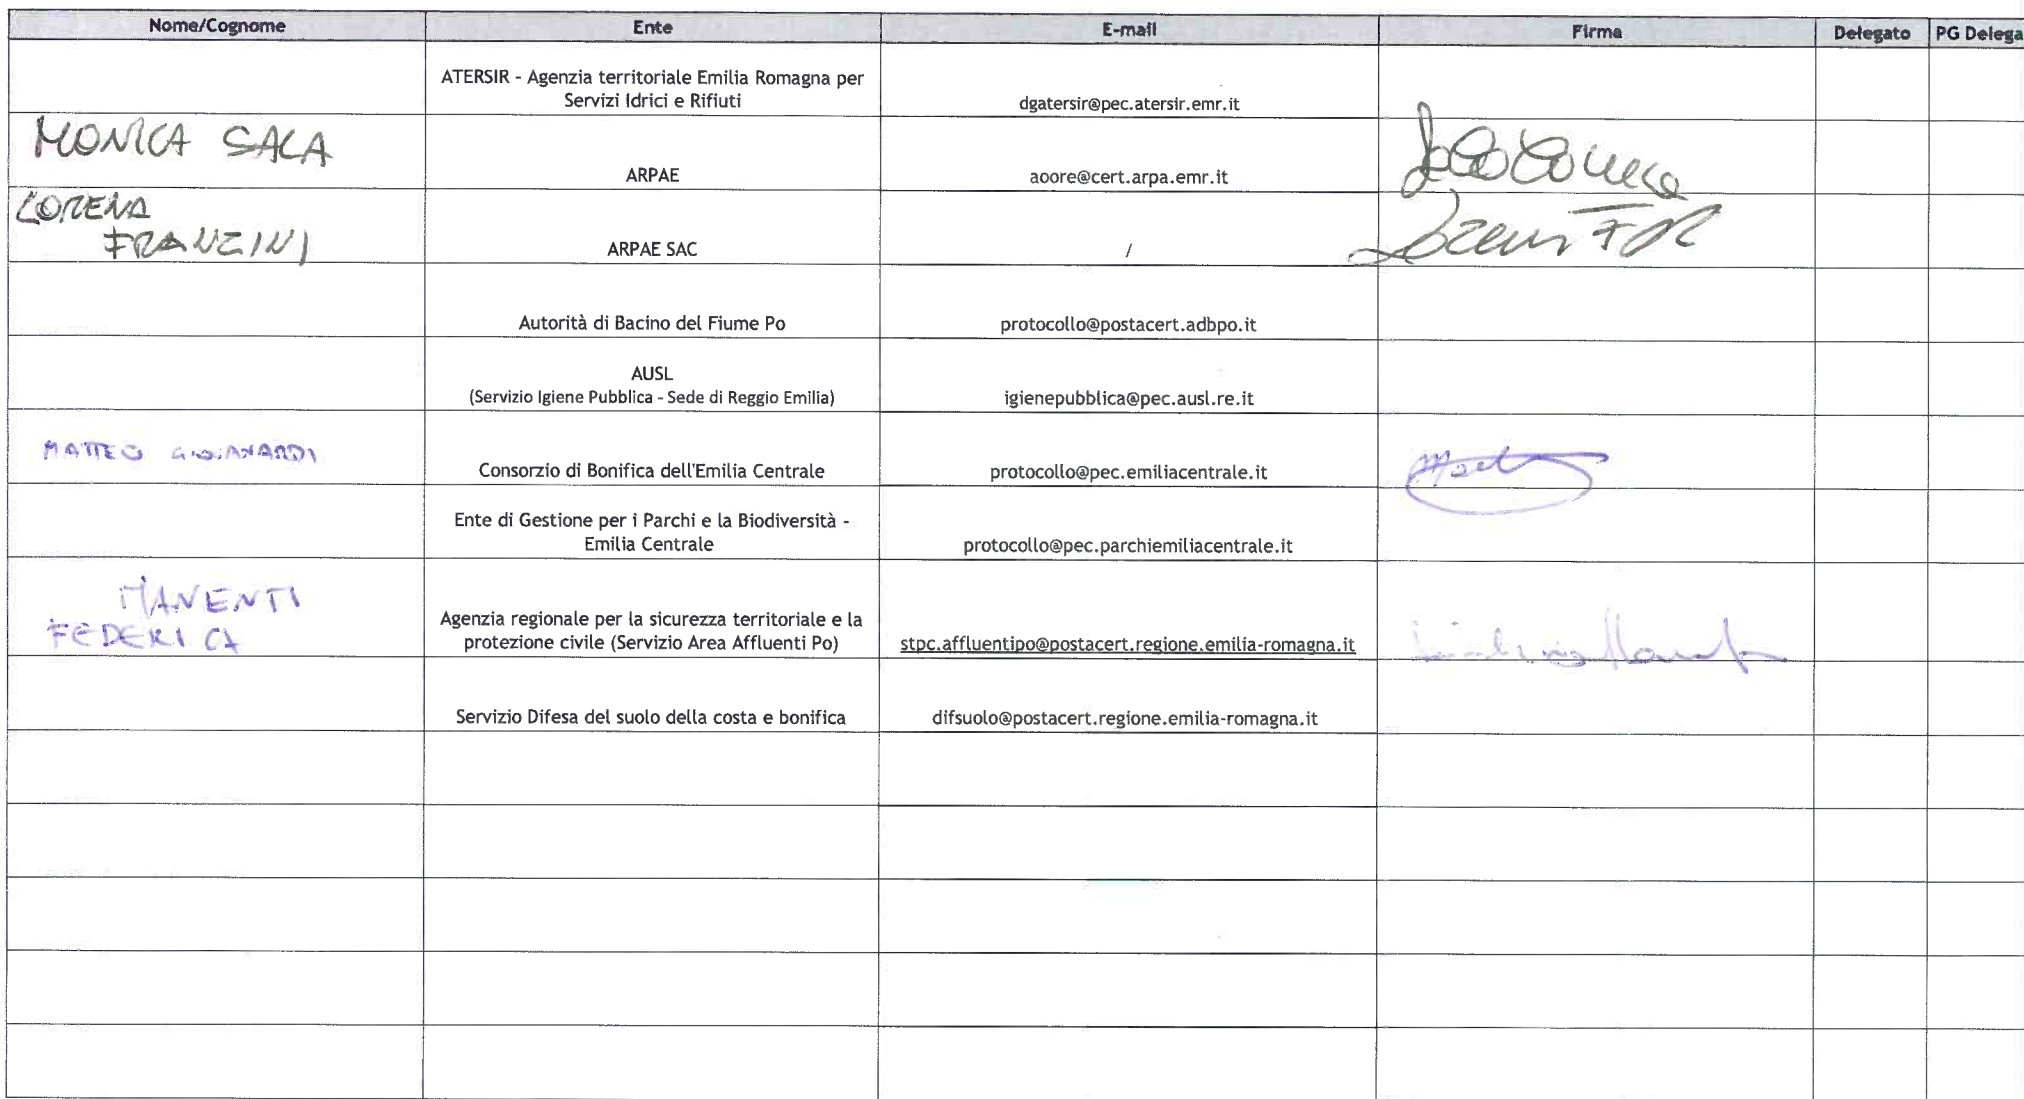 Nome/Cognome Ente E-mail Firma Delegato PG Delega
ATERSIR - Agenzia territoriale Emilia Romagna per
Servizi Idrici e Rifiuti dgatersir@pec.atersir.emr.it
MONICA SALA ARPAE aoore@cert.arpa.emr.it
LORENA
FRANZINI ARPAE SAC /
Autorità di Bacino del Fiume Po protocollo@postacert.adbpo.it
AUSL
(Servizio Igiene Pubblica - Sede di Reggio Emilia) igienepubblica@pec.ausl.re.it
MATTEO Consorzio di Bonifica dell'Emilia Centrale protocollo@pec.emiliacentrale.it
Ente di Gestione per i Parchi e la Biodiversità -
Emilia Centrale protocollo@pec.parchiemiliacentrale.it
MANENTI Agenzia regionale per la sicurezza territoriale e la
FEDERICA protezione civile (Servizio Area Affluenti Po) stpc.affluentipo@postacert.regione.emilia-romagna.it
Servizio Difesa del suolo della costa e bonifica difsuolo@postacert.regione.emilia-romagna.it